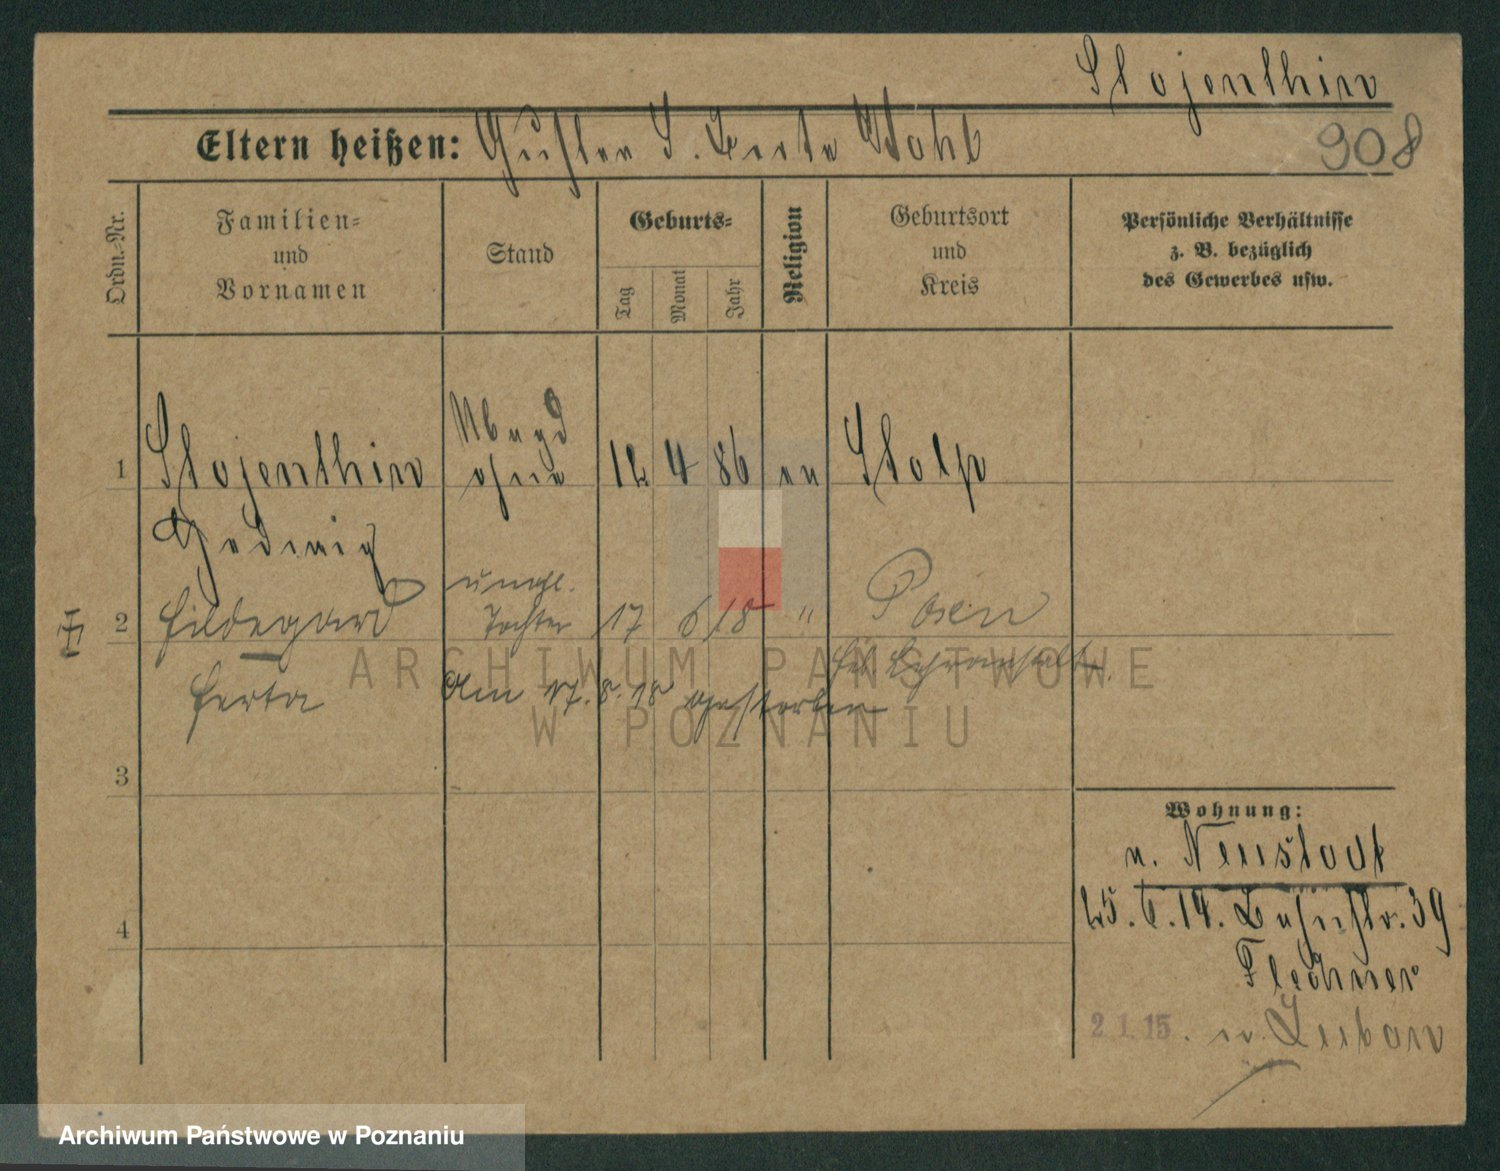 Stojenthin
908
Eltern heißen: Gustav u. Berta Wohl
Ordn.-Nr.
Familien-
und
Vornamen
Stand
Geburts-
Tag
Monat
Jahr
Religion
Geburtsort
und
Kreis
Persönliche Verhältnisse
z. B. bezüglich
des Gewerbes usw.
1 Stojenthin Magd ohne 12 4 86 ev Stolp
Hedwig
2 Hildegard unehl. Tochter 17 6 18 " Posen
Heb. Lehranstalt.
Herta Am 17.8.18 gestorben
3
4
Wohnung:
n. Neustadt
25.6.14. Bahnstr. 39
Flechner
2.1.15. n. Luban
ARCHIWUM PAŃSTWOWE
W POZNANIU
Archiwum Państwowe w Poznaniu